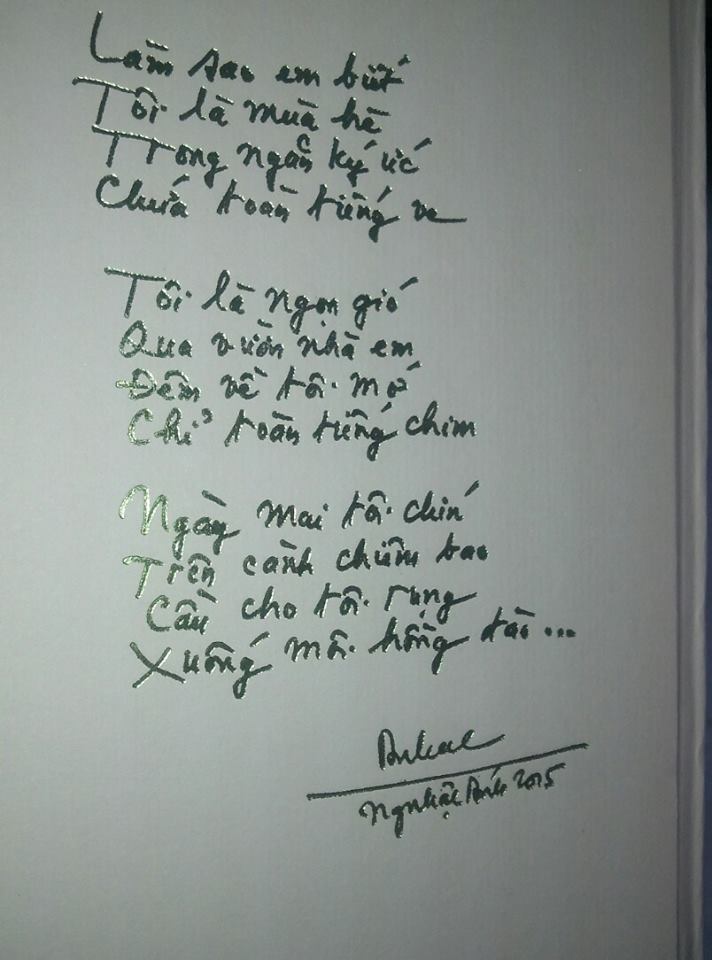 Làm sao em biết
Tôi là mùa hè
Trong ngăn ký ức
Chứa toàn tiếng ve
Tôi là ngọn gió
Qua vườn nhà em
Đêm về tôi mớ
Chỉ toàn tiếng chim
Ngày mai tôi chín
Trên cành chiêm bao
Cầu cho tôi rụng
Xuống môi hồng đào...
Nguyễn Nhật Ánh 2015